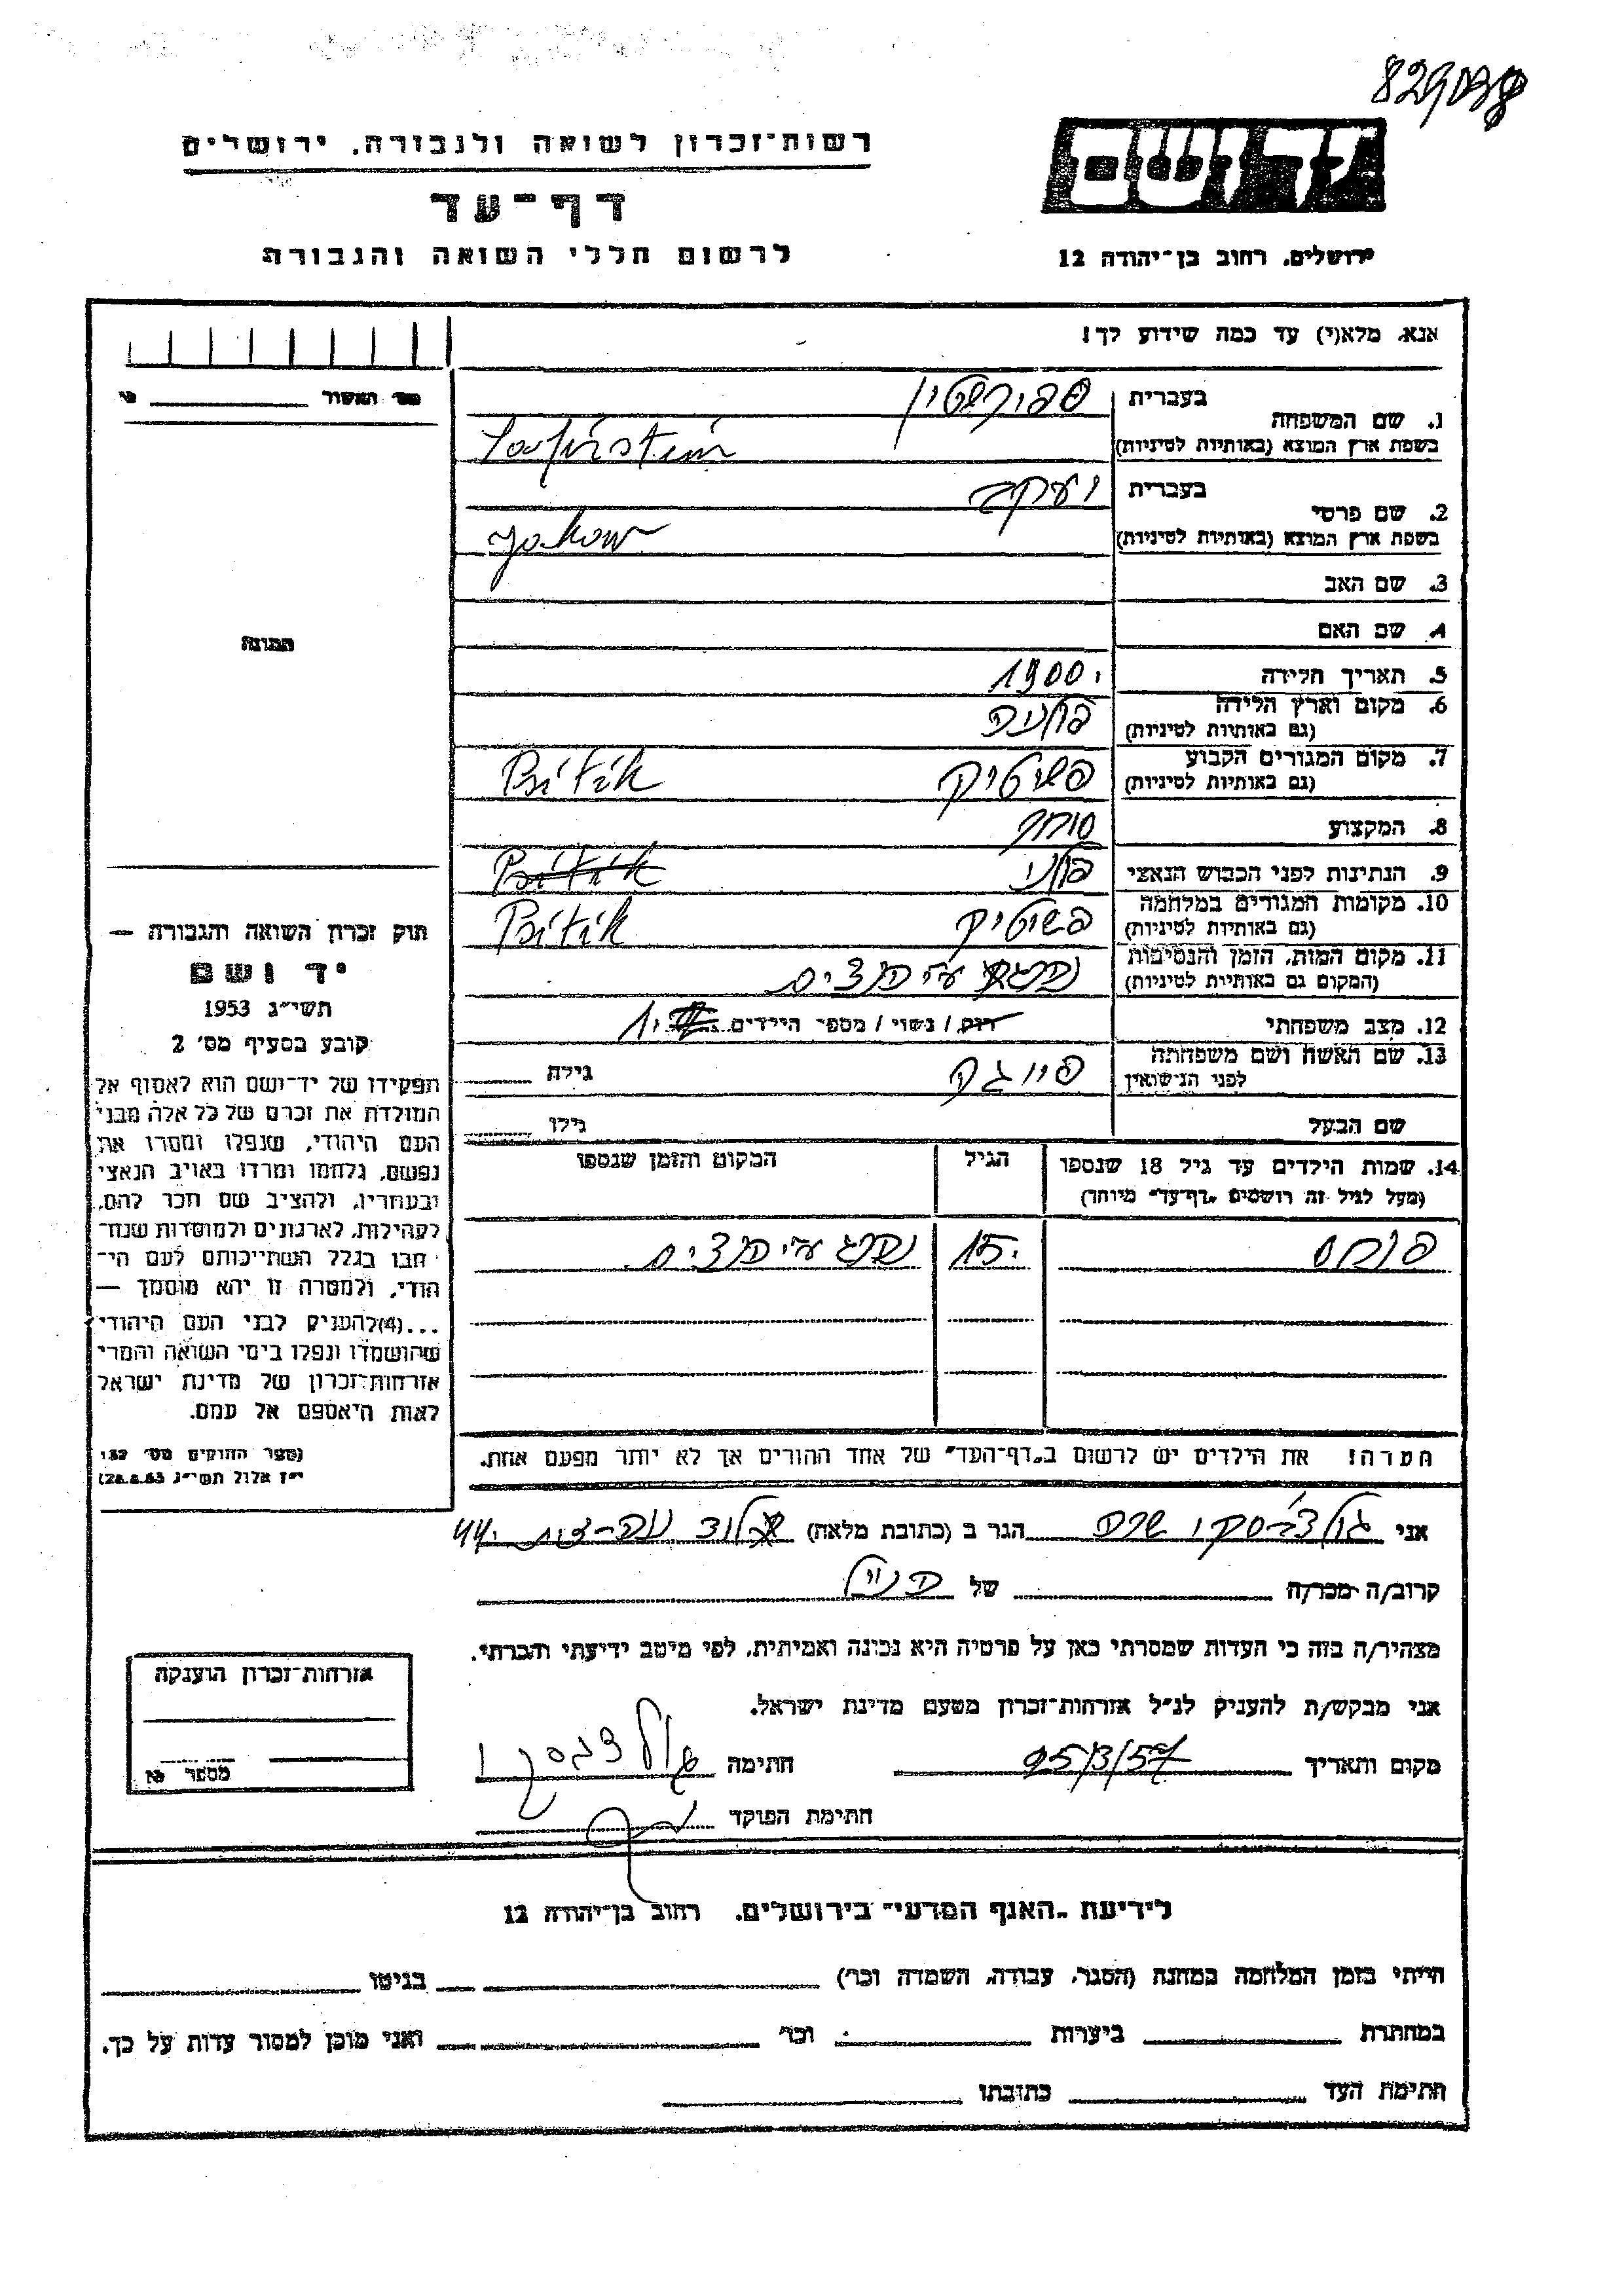 829038
רשות־זכרון לשואה ולגבורה. ירושלים
דף־עד
לרשום חללי השואה והגבורה
יד ושם
ירושלים. רחוב בן־יהודה 12
אנא. מלא(י) עד כמה שידוע לך!
1. שם המשפחה
בעברית ספירשטין
בשפת ארץ המוצא (באותיות לטיניות)
2. שם פרטי
בעברית יעקב
בשפת ארץ המוצא (באותיות לטיניות) Jakow
3. שם האב
4. שם האם
5. תאריך הלידה 1900
6. מקום וארץ הלידה
(גם באותיות לטיניות)
7. מקום המגורים הקבוע פשיטיק
(גם באותיות לטיניות)
8. המקצוע סוחר
9. הנתינות לפני הכבוש הנאצי פולני
10. מקומות המגורים במלחמה פשיטיק
(גם באותיות לטיניות)
11. מקום המות, הזמן והנסיבות נהרג ע״י הנאצים
(המקום גם באותיות לטיניות)
12. מצב משפחתי רוק / נשוי / מספר הילדים 1
13. שם האשה ושם משפחתה
לפני הנישואין
גילה
שם הבעל גילו
14. שמות הילדים עד גיל 18 שנספו
(מעל לגיל זה רושמים „דף־עד״ מיוחד)
הגיל
המקום והזמן שנספו
15 נהרג ע״י הנאצים
הערה! את הילדים יש לרשום ב„דף־העד״ של אחד ההורים אך לא יותר מפעם אחת.
אני הגר ב (כתובת מלאה) 44
קרוב/ה מכר/ה של
מצהיר/ה בזה כי העדות שמסרתי כאן על פרטיה היא נכונה ואמיתית, לפי מיטב ידיעתי והכרתי.
אני מבקש/ת להעניק לנ״ל אזרחות־זכרון מטעם מדינת ישראל.
מקום ותאריך חתימה
חתימת הפוקד
מס׳ האשור
תמונה
חוק זכרון השואה והגבורה —
יד ושם
תשי״ג 1953
קובע בסעיף מס׳ 2
תפקידו של יד־ושם הוא לאסוף אל
המולדת את זכרם של כל אלה מבני
העם היהודי, שנפלו ומסרו את
נפשם, נלחמו ומרדו באויב הנאצי
ובעוזריו, ולהציב שם וזכר להם,
לקהילות, לארגונים ולמוסדות שנח־
רבו בגלל השתייכותם לעם הי־
הודי, ולמטרה זו יהא מוסמך —
...(4)להעניק לבני העם היהודי
שהושמדו ונפלו בימי השואה והמרי
אזרחות־זכרון של מדינת ישראל
לאות היאספם אל עמם.
(ספר החוקים מס׳ 132
י״ז אלול תשי״ג 28.8.53)
אזרחות־זכרון הוענקה
מספר
לידיעת „האגף המדעי״ בירושלים. רחוב בן־יהודה 12
הייתי בזמן המלחמה במחנה (הסגר, עבודה, השמדה וכו׳) בגיטו
במחתרת ביערות וכו׳ ואני מוכן למסור עדות על כך.
חתימת העד כתובתו